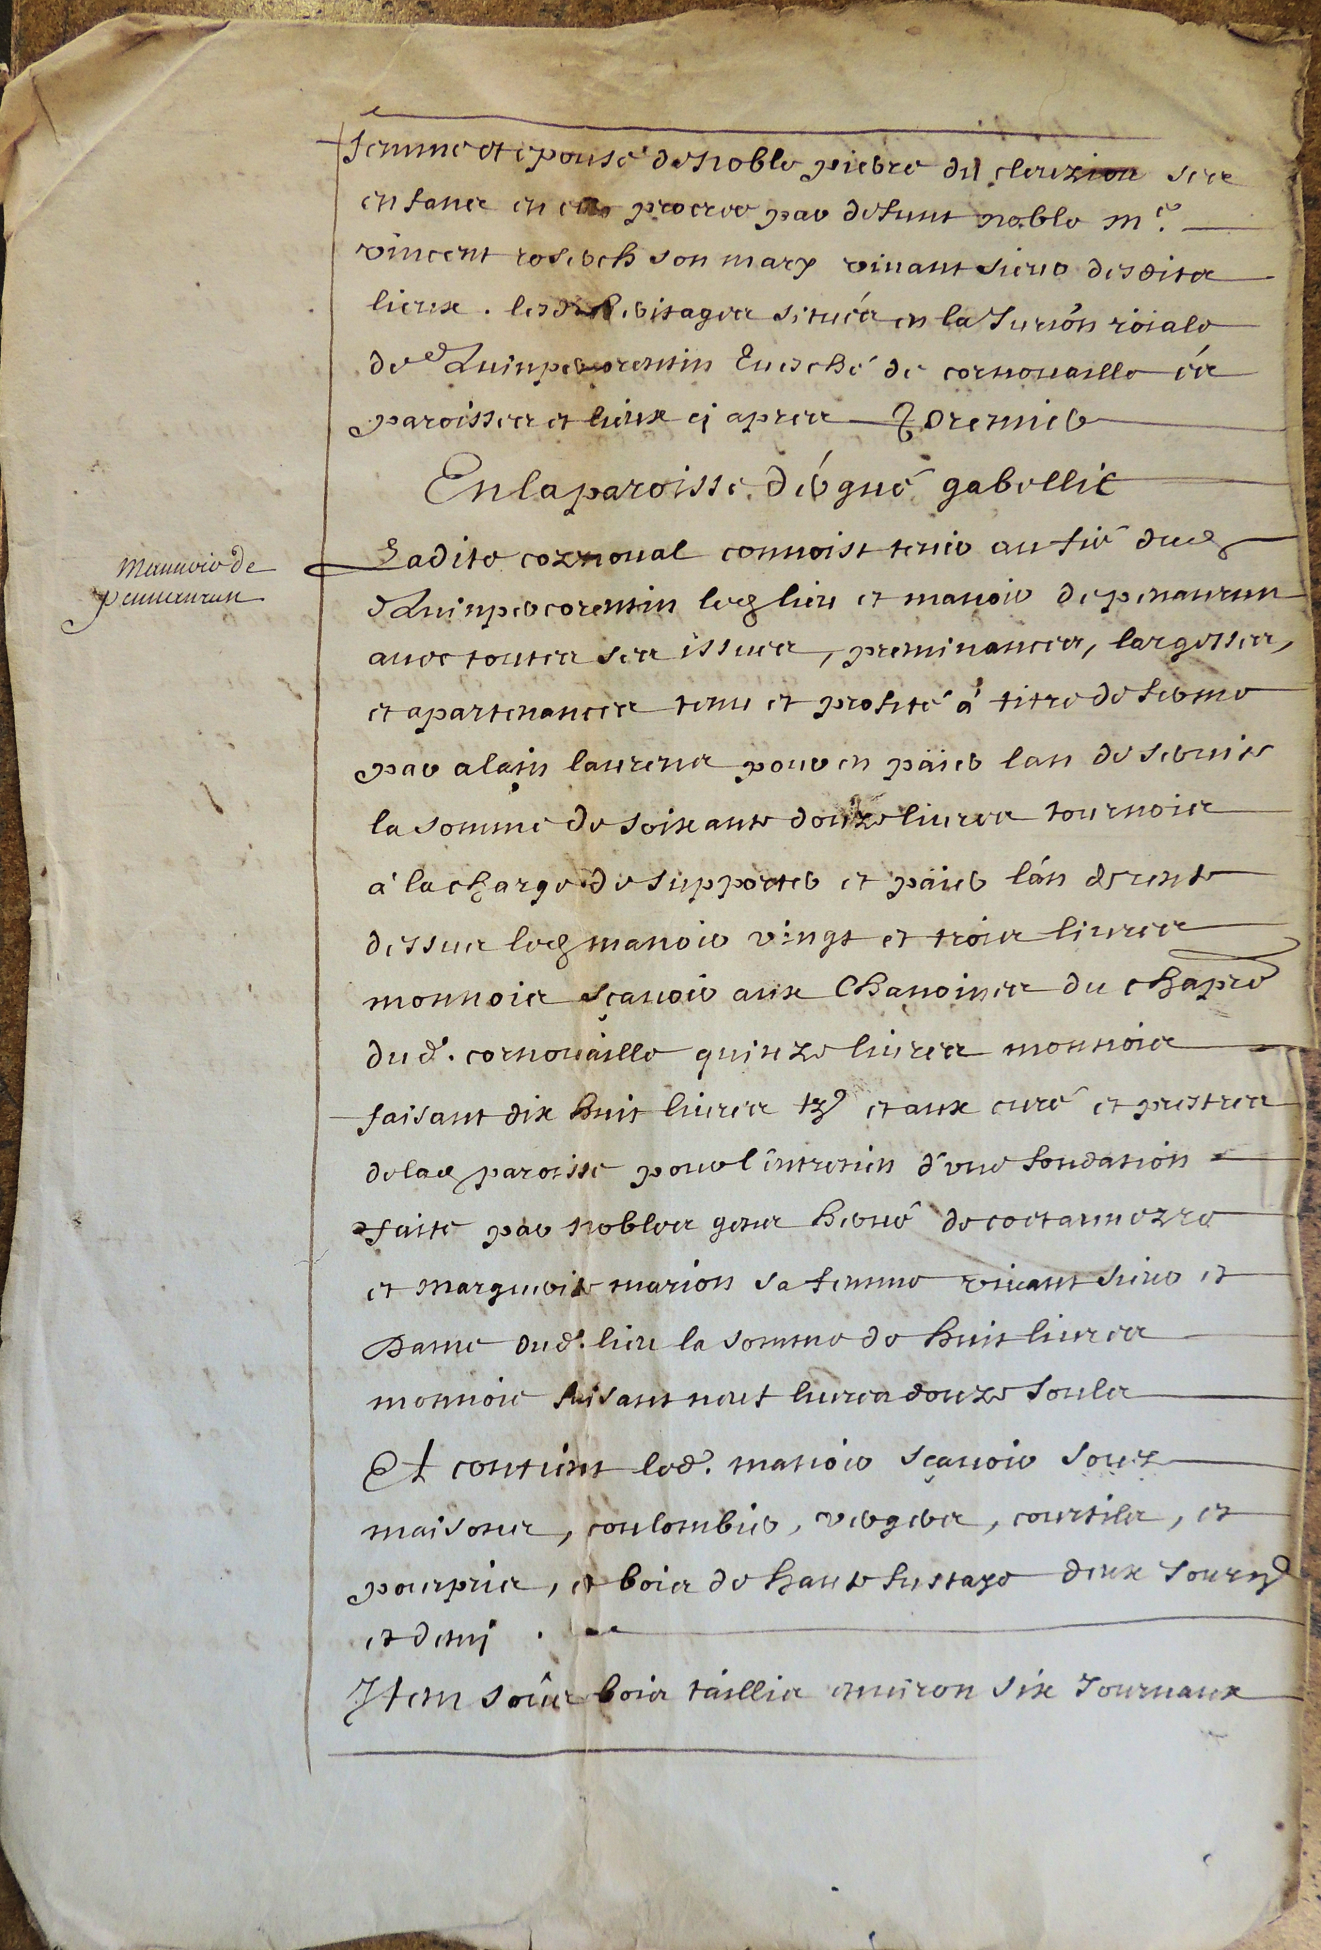 femme et epouse de noble pierre du cleuziou ses
enfans en elle procree par defunt noble m.e
vincent roserch son mary vivant sieur desdits
lieux. lesd. heritages situés en la Jurion roiale
de Quimpercorentin Evesché de cornouaille és
paroisses et lieux cy apres Premier
En la paroisse d'érgué gabellic
Ladite coznoual connoist tenir au fié dud
Quimpercorentin led lieu et manoir de penanrun
avec toutes ses issues, preminances, largesses,
et apartenances tenu et profité a titre de ferme
par alain laurens pour en päier l'an de ferme
la somme de soixante douze livres tournois
à la charge de supporter et päier l'an de rente
dessus led manoir vingt et trois livres
monnoie sçavoir aux Chanoines du chapre
dud. cornouaille quinze livres monnoie
faisant dix huit livres tz et aux curé et prestres
de lad paroisse pour l'entretien d'une fondation
faite par nobles gens hervé de coetanmezre
et Marguerite marion sa femme vivant sieur et
Dame dud. lieu la somme de huit livres
monnoie faisant neuf livres douze soulz
Et contient led. manoir sçavoir souz
maisons, coulombier, vergers, courtils, et
pourpris, et bois de haute fustaye deux Journ
et demi.
Item souz bois taillis environ six Journaux
Mannoir de
pennanrun